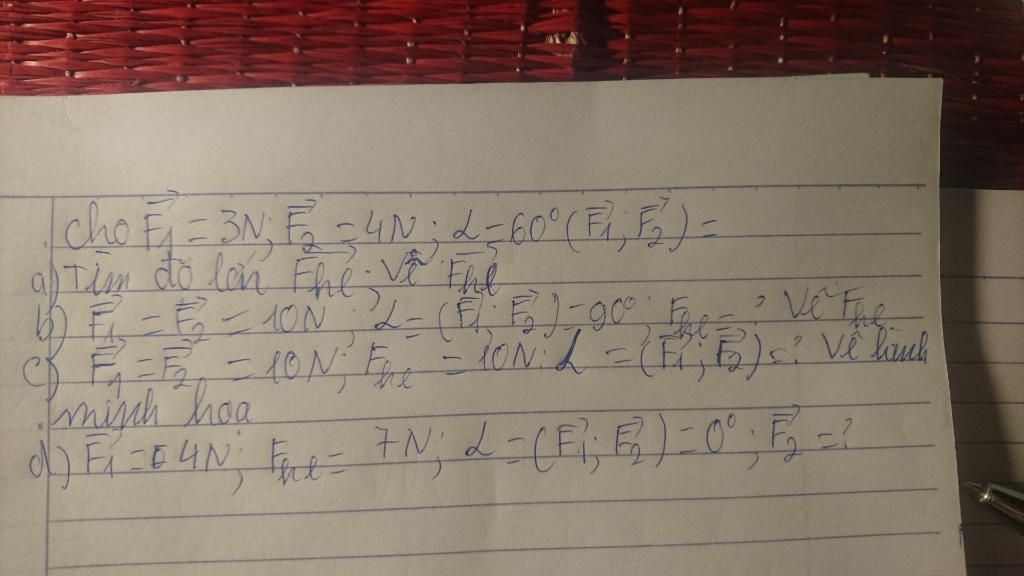 Cho F₁→ = 3N; F₂→ = 4N; α = 60° (F₁→; F₂→) =
a) Tìm độ lớn Fhl→; Vẽ Fhl→
b) F₁→ = F₂→ = 10N; α = (F₁→; F₂→) = 90°; Fhl = ? Vẽ Fhl
c) F₁→ = F₂→ = 10N; Fhl = 10N: α = (F₁→; F₂→) = ? Vẽ hình
minh hoạ
d) F₁→ = 4N; Fhl = 7N; α = (F₁→; F₂→) = 0°; F₂→ = ?